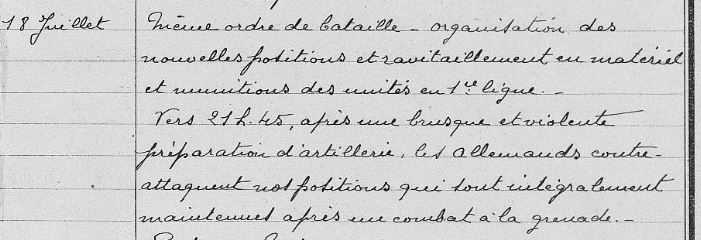 18 Juillet
Même ordre de bataille - organisation des
nouvelles positions et ravitaillement en matériel
et munitions des unités en 1re ligne. -
Vers 21h.45, après une brusque et violente
préparation d'artillerie, les allemands contre-
attaquent nos positions qui sont intégralement
maintenues après un combat à la grenade. -